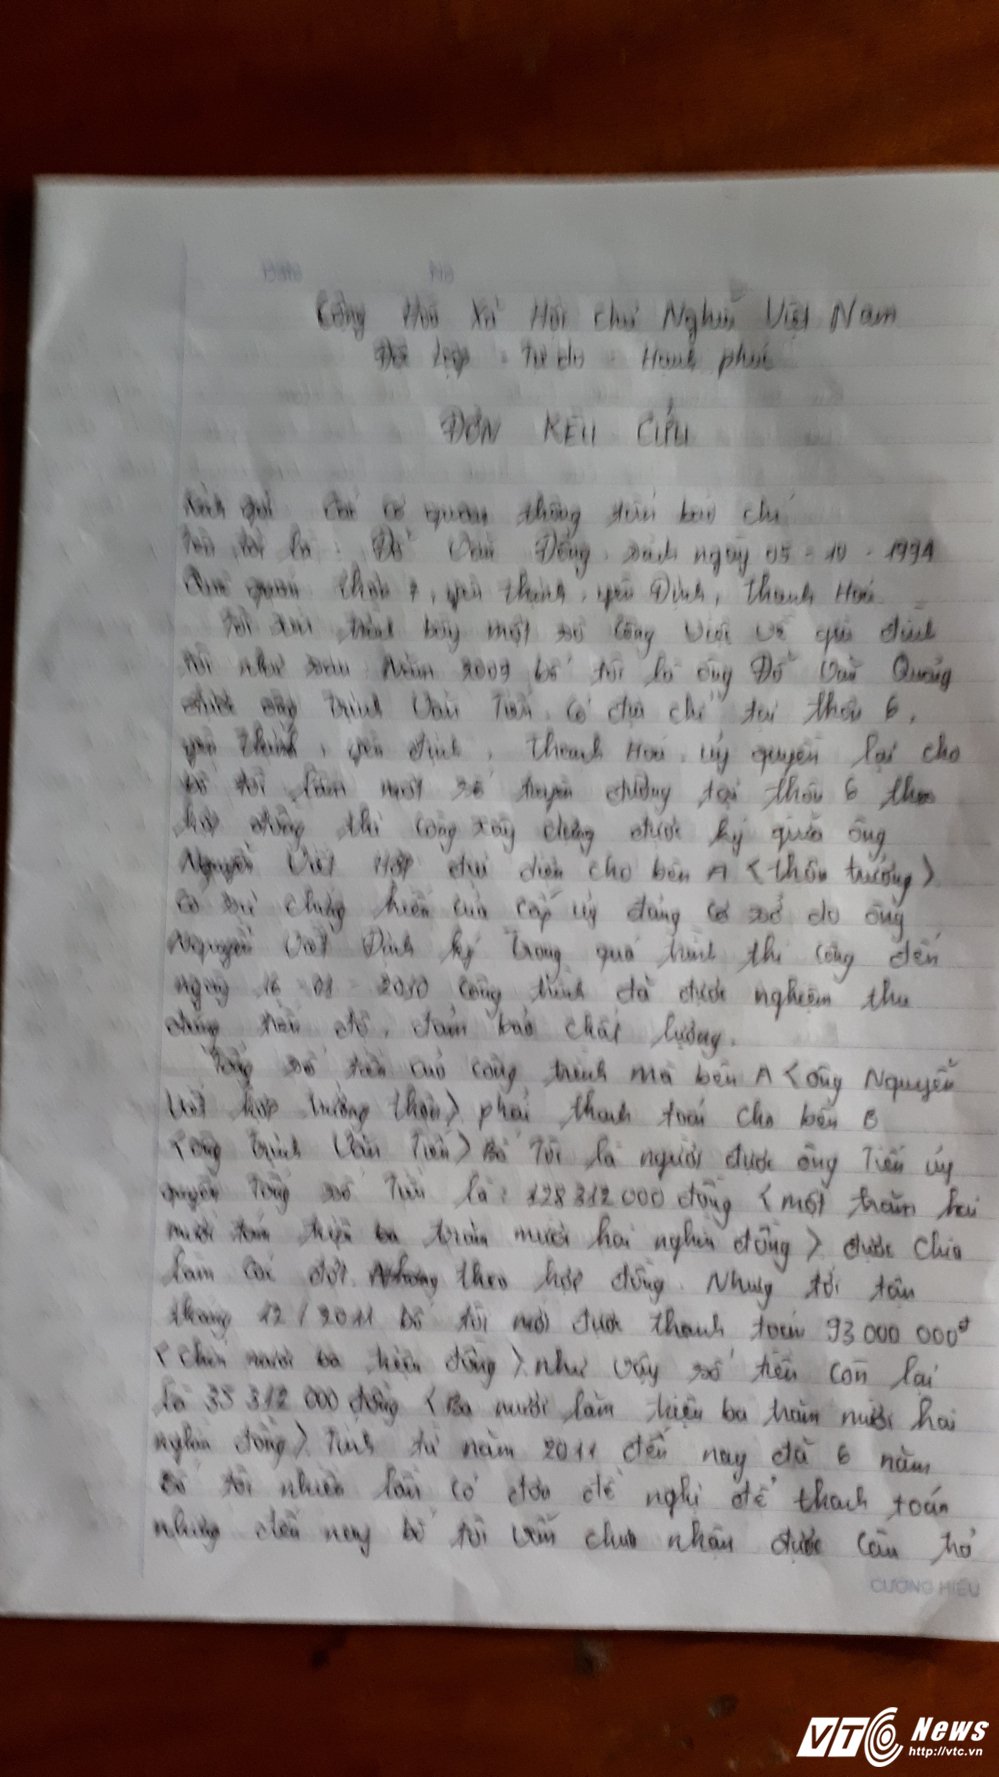 Cộng Hoà Xã Hội chủ Nghĩa Việt Nam
Độc lập - Tự do - Hạnh phúc
ĐƠN KÊU CỨU
Kính gửi các cơ quan thông tấn báo chí
Tên tôi là: Đỗ Văn Đồng. sinh ngày 05 - 10 - 1994
Quê quán thôn 7, yên thịnh, yên Định, Thanh Hoá
Tôi xin trình bày một số công việc về gia đình
tôi như sau Năm 2009 bố tôi là ông Đỗ Văn Quảng
được ông Trịnh Văn Tiến. có địa chỉ tại thôn 6,
yên thịnh, yên định, Thanh Hoá uỷ quyền lại cho
bố tôi làm một số tuyến đường tại thôn 6 theo
hợp đồng thi công xây dựng được ký giữa ông
Nguyễn Viết Hợp đại diện cho bên A <thôn trưởng>
có sự chứng kiến của cấp uỷ đảng cơ sở do ông
Nguyễn Viết Định ký Trong quá trình thi công đến
ngày 16 - 01 - 2010 công trình đã được nghiệm thu
đúng tiến độ, đảm bảo chất lượng.
Tổng số tiền của công trình mà bên A <ông Nguyễn
Viết hợp trưởng thôn> phải thanh toán cho bên B
<ông Trịnh Văn Tiến> Bố Tôi là người được ông Tiến uỷ
quyền Tổng số Tiền là: 128 312 000 đồng <một trăm hai
mươi tám triệu ba trăm mười hai nghìn đồng> được chia
làm các đợt theo hợp đồng. Nhưng tới tận
tháng 12/2011 bố tôi mới được thanh toán 93 000 000đ
<chín mươi ba triệu đồng> như vậy số tiền còn lại
là 35 312 000 đồng <Ba mươi lăm triệu ba trăm mười hai
nghìn đồng> Tính từ năm 2011 đến nay đã 6 năm
Bố tôi nhiều lần có đơn đề nghị để thanh toán
nhưng đến nay bố tôi vẫn chưa nhận được câu trả
CƯỜNG HIẾU
VTC News
http://vtc.vn